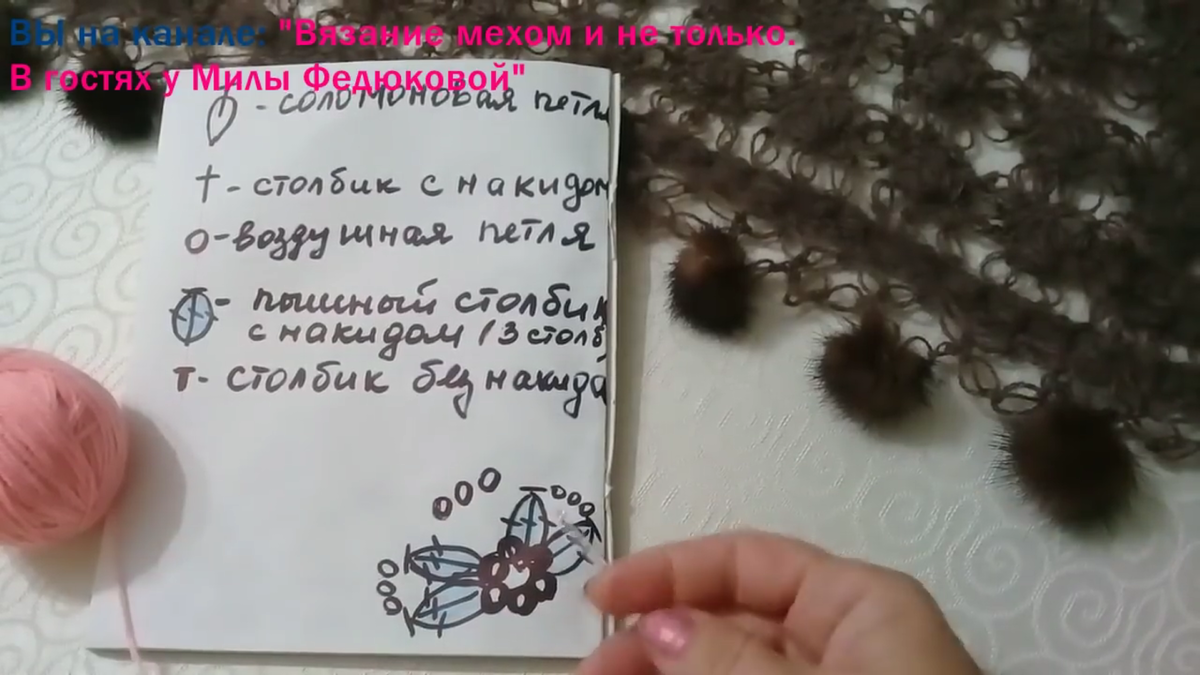 ВЫ на канале: "Вязание мехом и не только.
В гостях у Милы Федюковой"
- соломоновая петля
- столбик с накидом
о - воздушная петля
- пышный столбик
с накидом (3 столб
т - столбик без накида